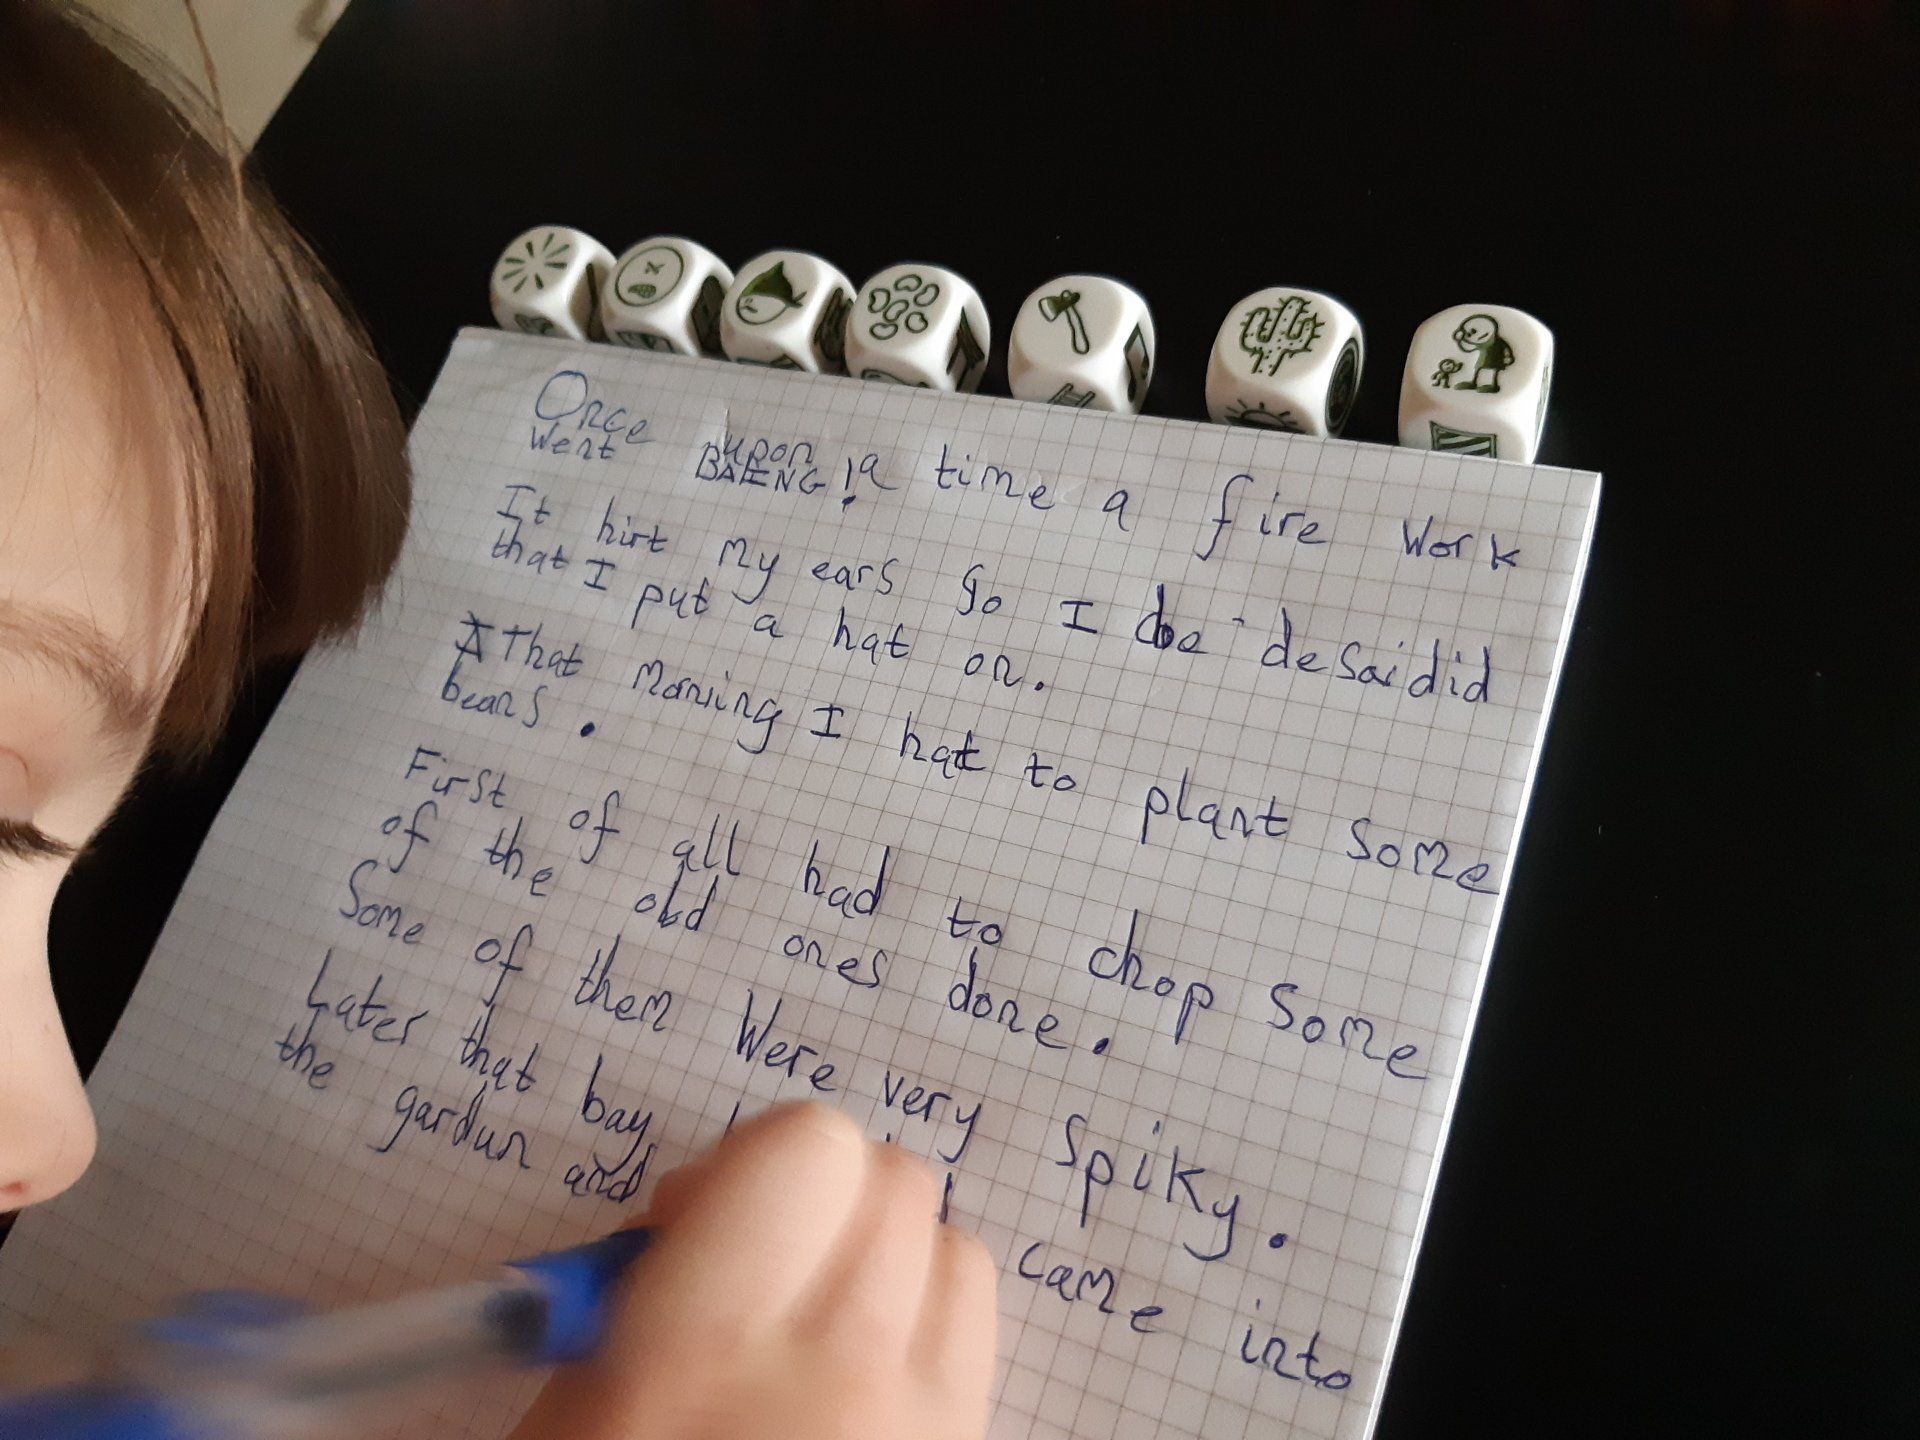 Once upon a time a fire work
went BAENG!
It hirt my ears so I desaidid
that I put a hat on.
That morning I hat to plant some
beans.
First of all had to chop some
of the old ones done.
Some of them were very spiky.
Later that bay came into
the gardun and